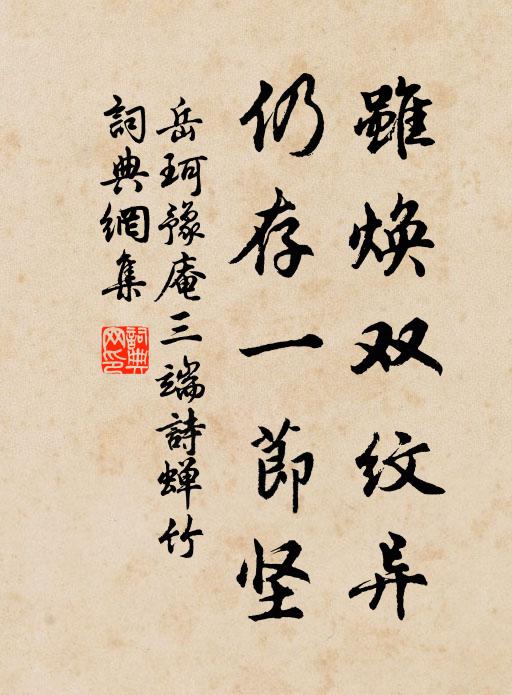 雖焕双纹异
仍存一節坚
岳珂豫庵三端詩蝉竹
詞典網集
詞典網印